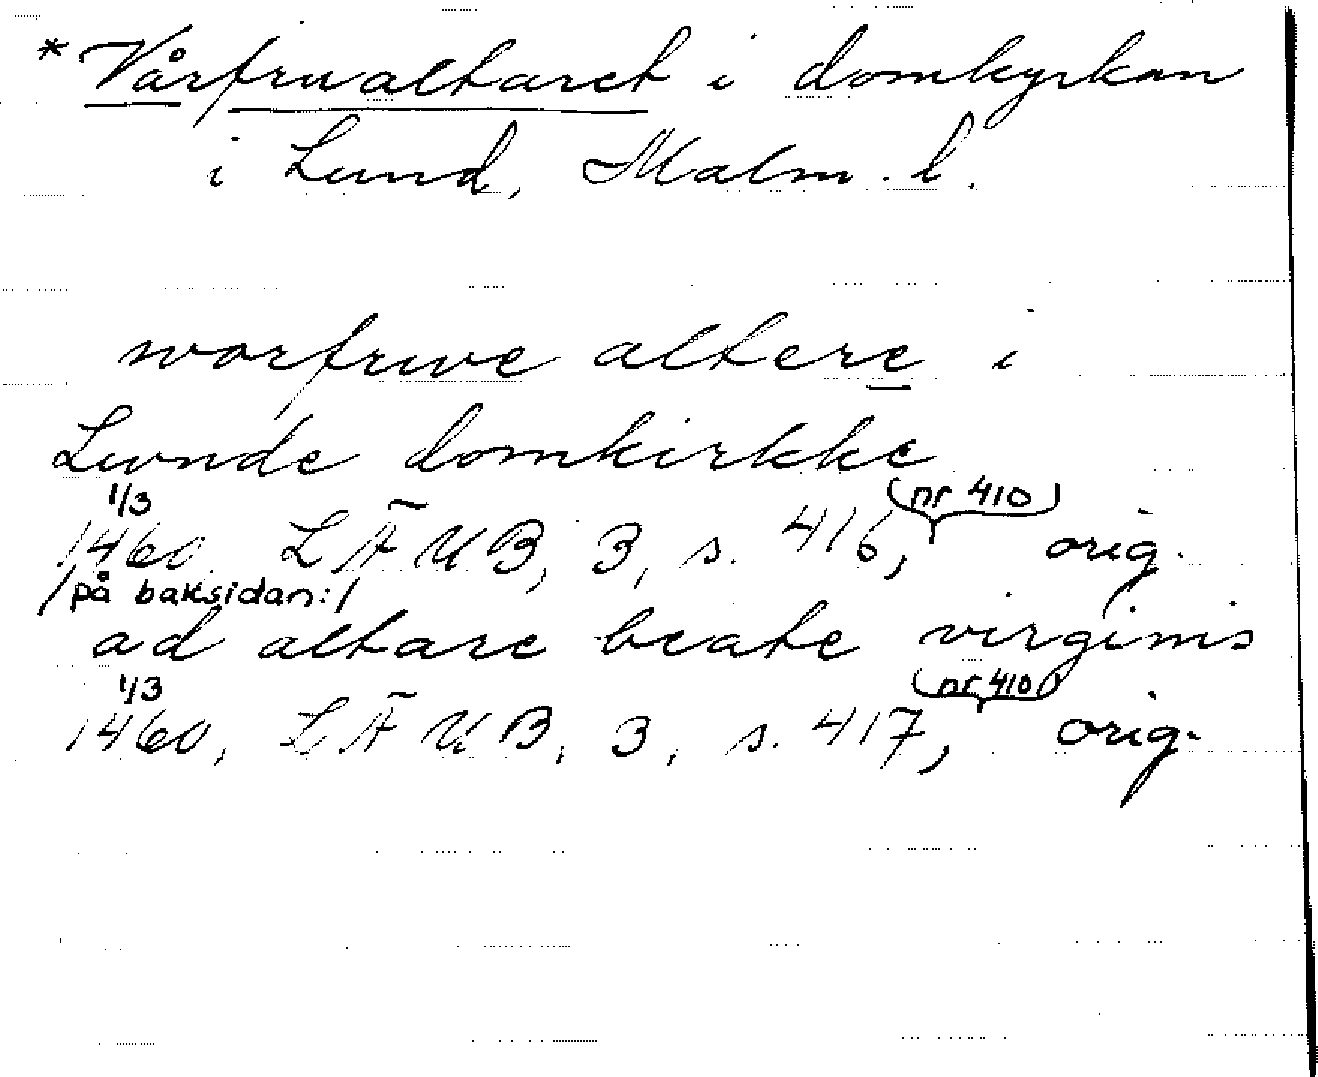 *Vårfrualtaret i domkyrkan
i Lund, Malm. l.
worfrwe altere i
Lwnde domkirkke
1/3 (nr 410)
1460. LÄUB, 3, s. 416, orig.
/på baksidan:/
ad altare beate virginis
1/3 (nr 410)
1460, LÄUB, 3, s. 417, orig.